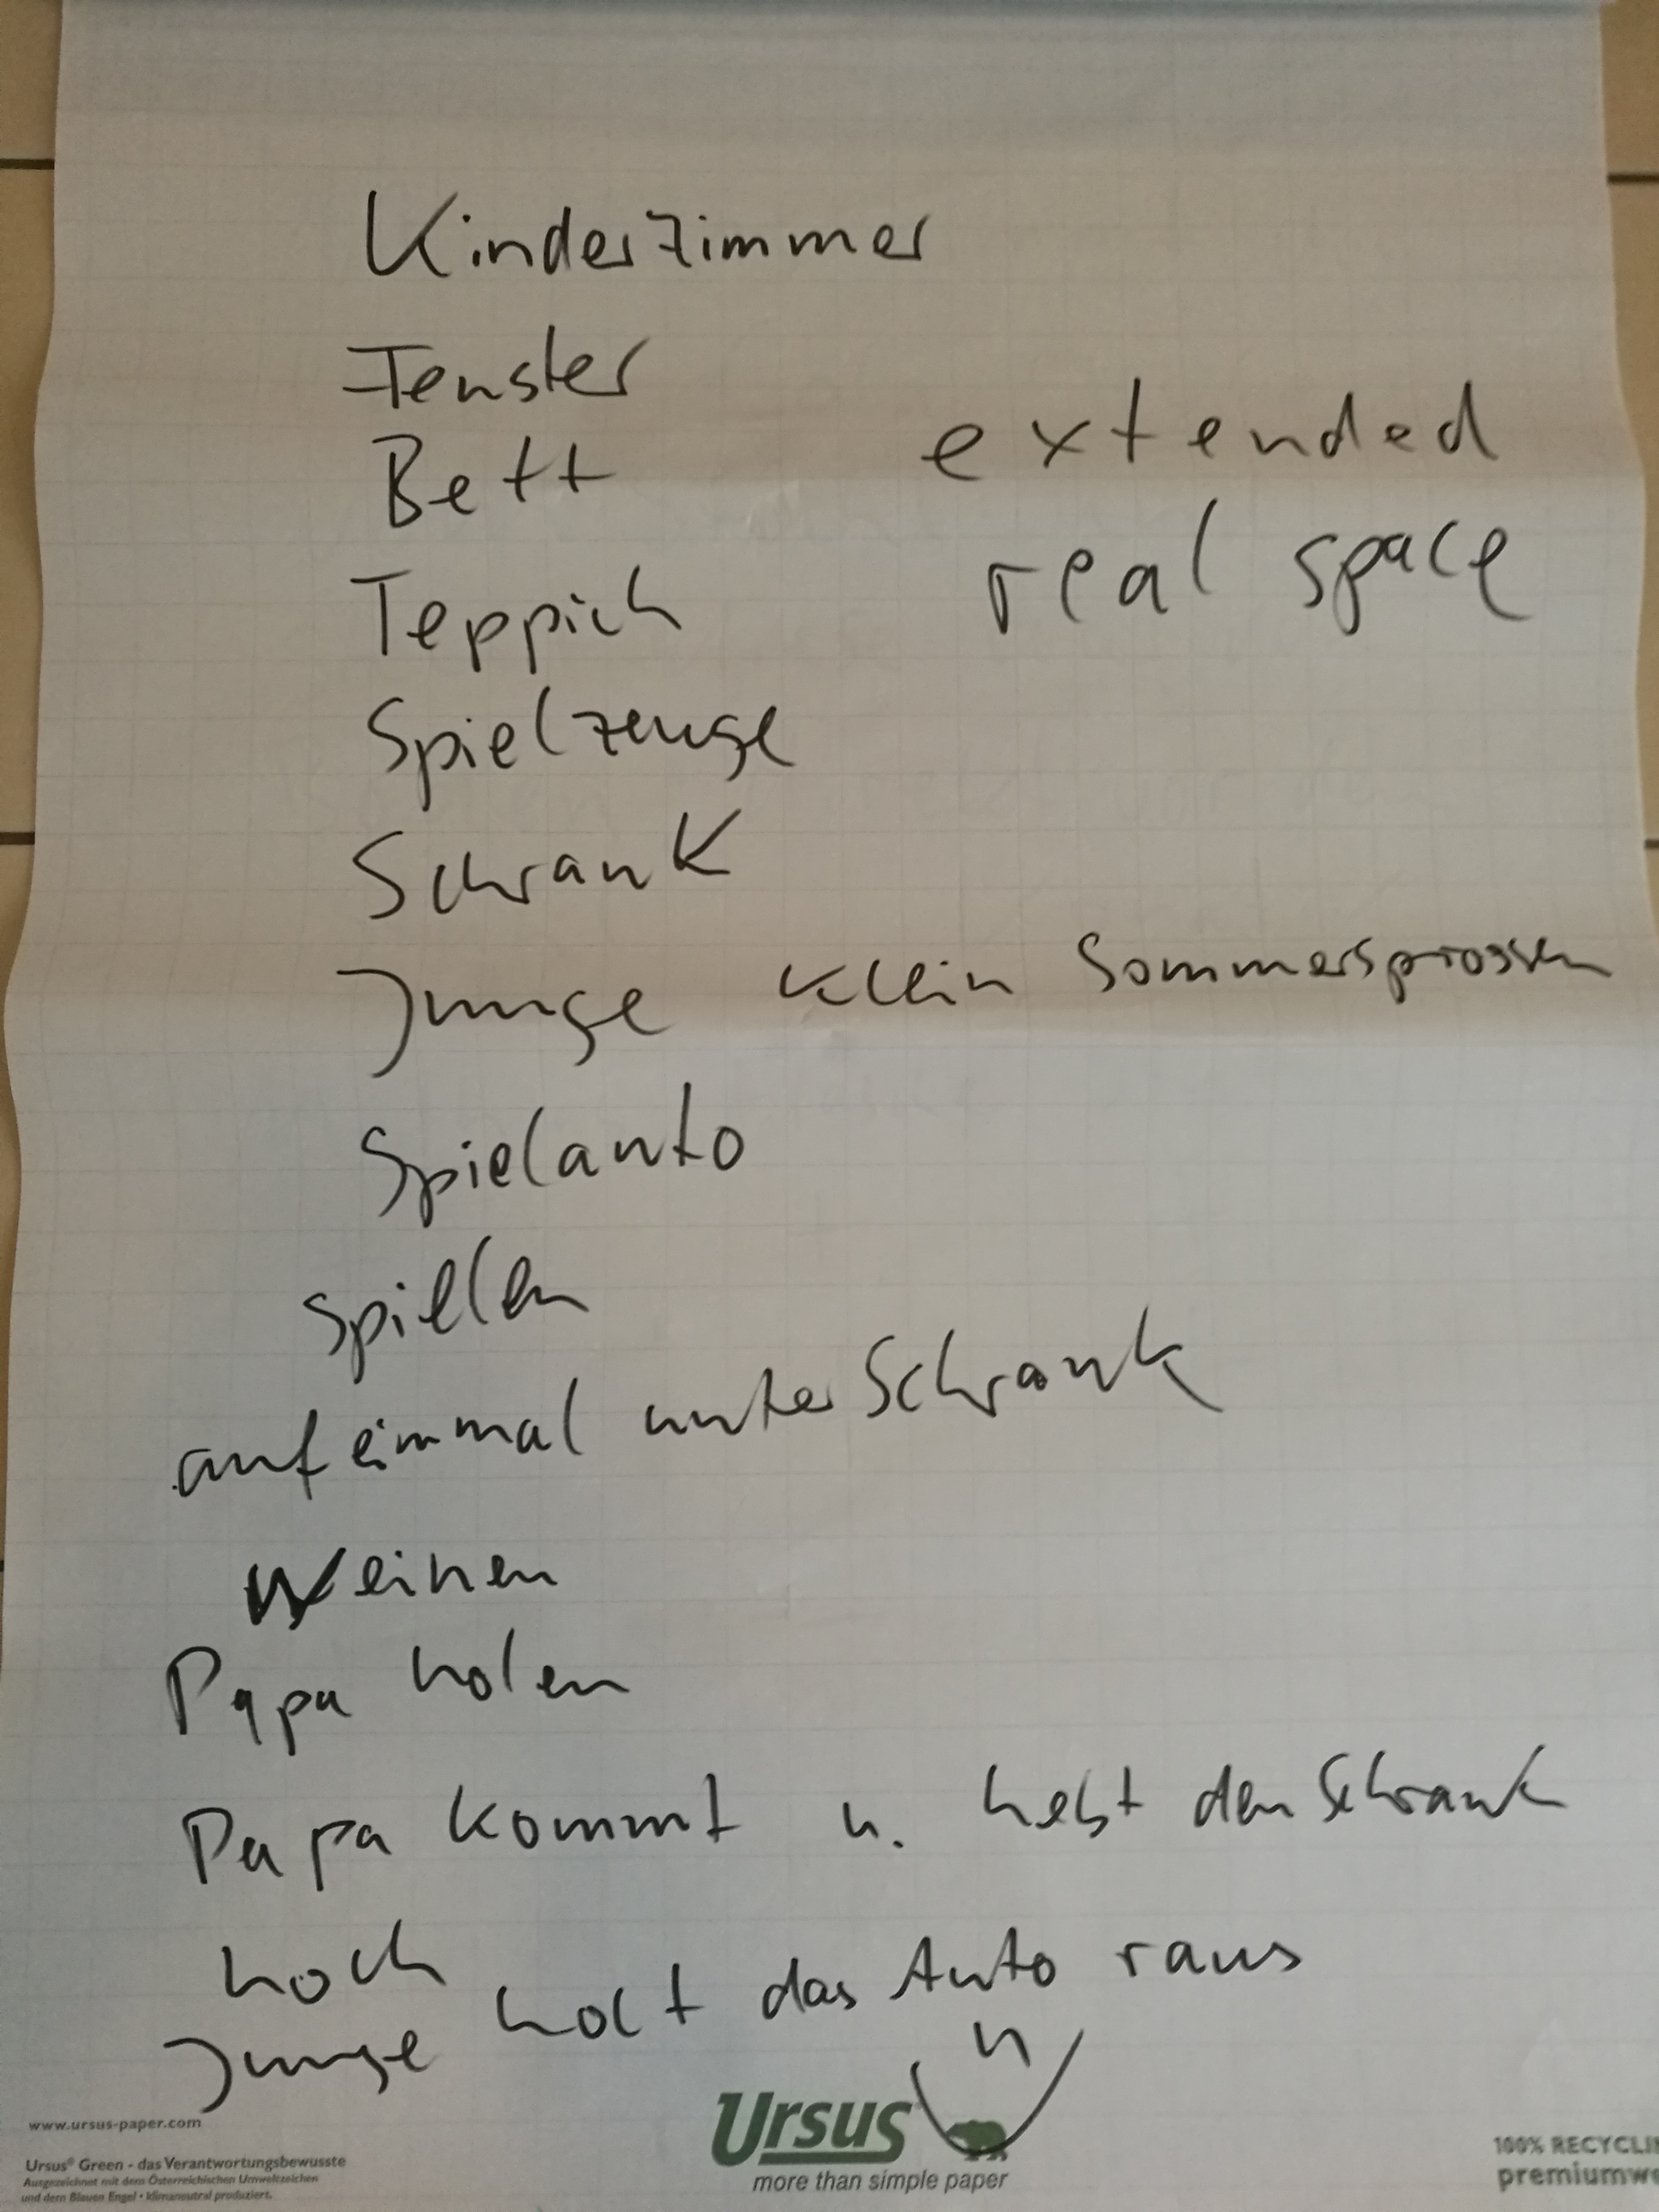 Kinderzimmer
Fenster
Bett
extended
real space
Teppich
Spielzeuge
Schrank
Junge klein Sommersprossen
Spielauto
spielen
auf einmal unter Schrank
weinen
Papa holen
Papa kommt u. hebt den Schrank
hoch
Junge holt das Auto raus
www.ursus-paper.com
Ursus® Green - das Verantwortungsbewusste
Ausgezeichnet mit dem Österreichischen Umweltzeichen
und dem Blauen Engel • klimaneutral produziert.
Ursus
more than simple paper
100% RECYCLI
premiumwe